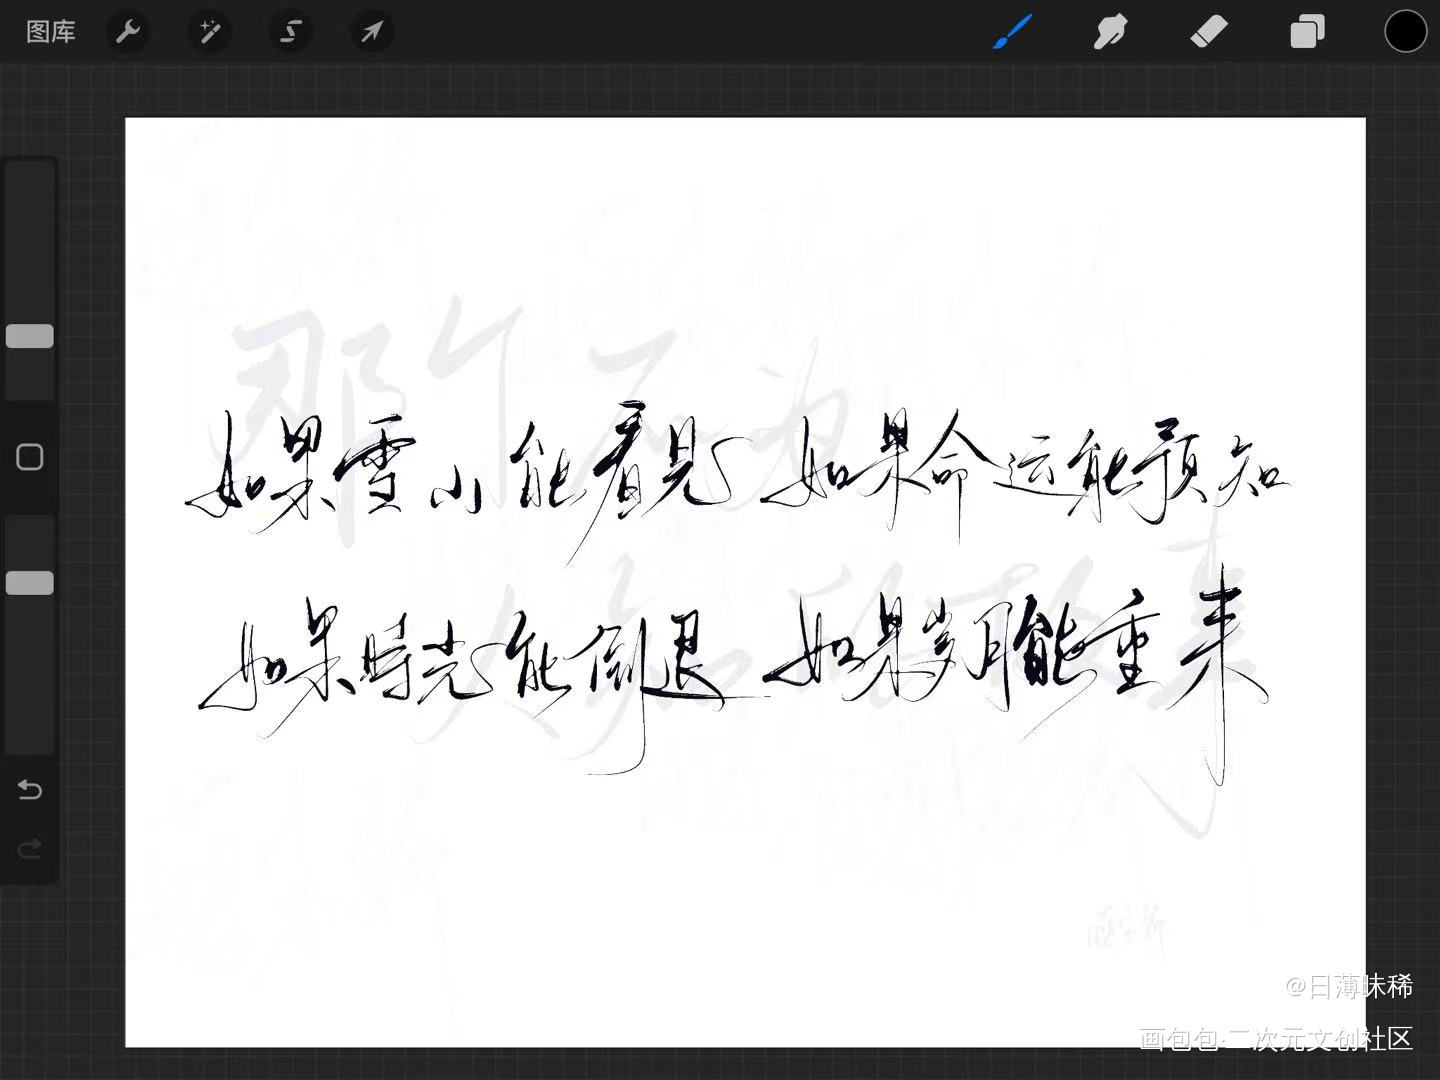 图库
如果雪山能看见 如果命运能预知
如果時光能倒退 如果岁月能重来
@日薄昧稀
画包包·二次元文创社区